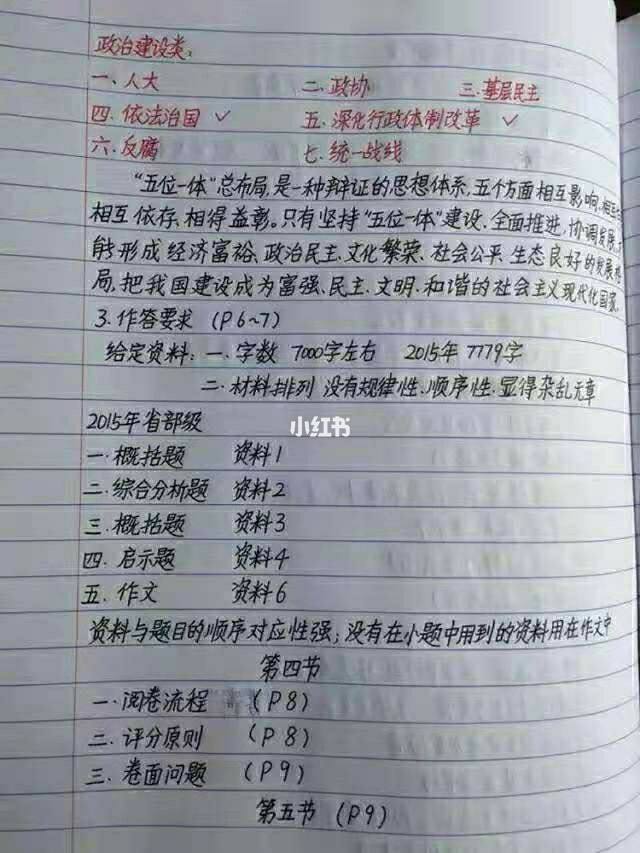 政治建设类:
一、人大 二、政协 三、基层民主
四、依法治国 ✓ 五、深化行政体制改革 ✓
六、反腐 七、统一战线
"五位一体"总布局,是一种辩证的思想体系,五个方面相互影响、
相互依存、相得益彰。只有坚持"五位一体"建设、全面推进、协调发展,
能形成经济富裕、政治民主、文化繁荣、社会公平、生态良好的发展格
局,把我国建设成为富强、民主、文明、和谐的社会主义现代化国家。
3.作答要求 (P6~7)
给定资料:一、字数 7000字左右 2015年 7779字
二、材料排列 没有规律性、顺序性、显得杂乱无章
小红书
2015年省部级
一.概括题 资料1
二.综合分析题 资料2
三.概括题 资料3
四.启示题 资料4
五.作文 资料6
资料与题目的顺序对应性强;没有在小题中用到的资料用在作文中
第四节
一.阅卷流程 (P8)
二.评分原则 (P8)
三.卷面问题 (P9)
第五节 (P9)